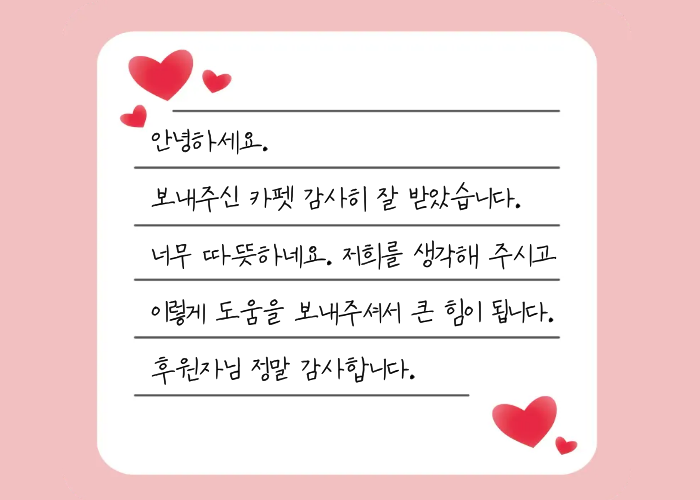 안녕하세요.
보내주신 카펫 감사히 잘 받았습니다.
너무 따뜻하네요. 저희를 생각해 주시고
이렇게 도움을 보내주셔서 큰 힘이 됩니다.
후원자님 정말 감사합니다.